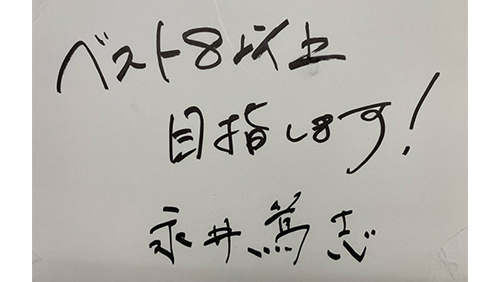 ベスト8以上
目指します!
永井篤志